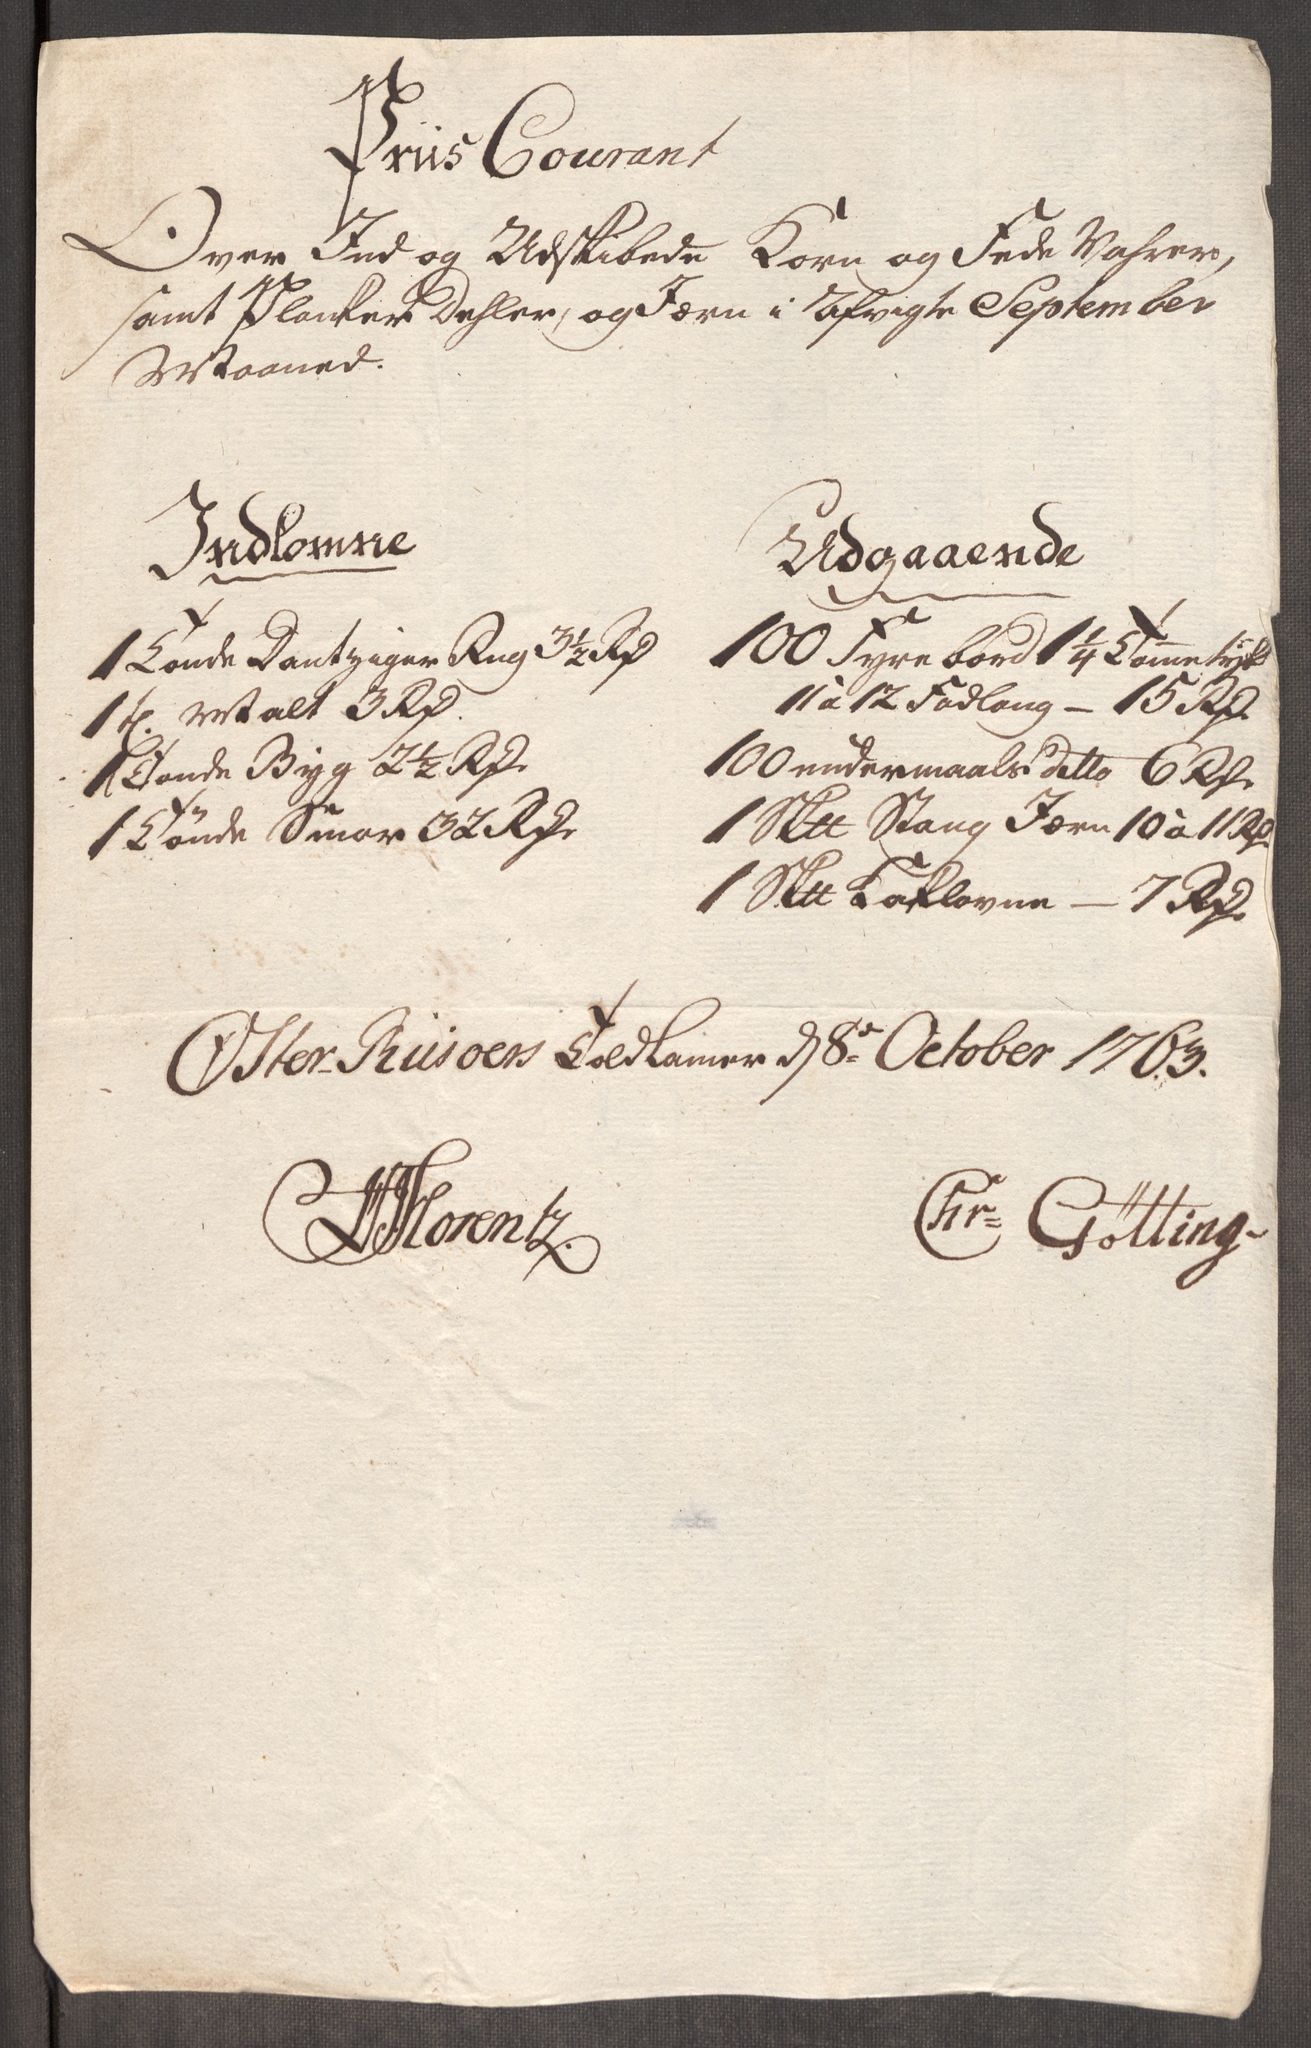 Priis Courant
Over Ind og Udskibede Korn og Fede Vahrer,
samt Planker Dehler, og Jærn i Afvigte September
Maaned.
Indkomne
1 Tønde Dantziger Rug 3½ Rd
1 t. Malt 3 Rd.
1 Tønde Byg 2½ Rd.
1 Tønde Smør 32 Rd.
Udgaaende
100 Fyrebord 1¼ Tomme tyk
11 a 12 Fod lang – 15 Rd.
100 undermaals detto 6 Rd.
1 Sk℔ Stang Jærn 10 a 11 Rd.
1 Sk℔ Kaklovne – 7 Rd.
Øster-Riisøers Toldkamer d 8de October 1763.
Florentz.
Chr= Götting